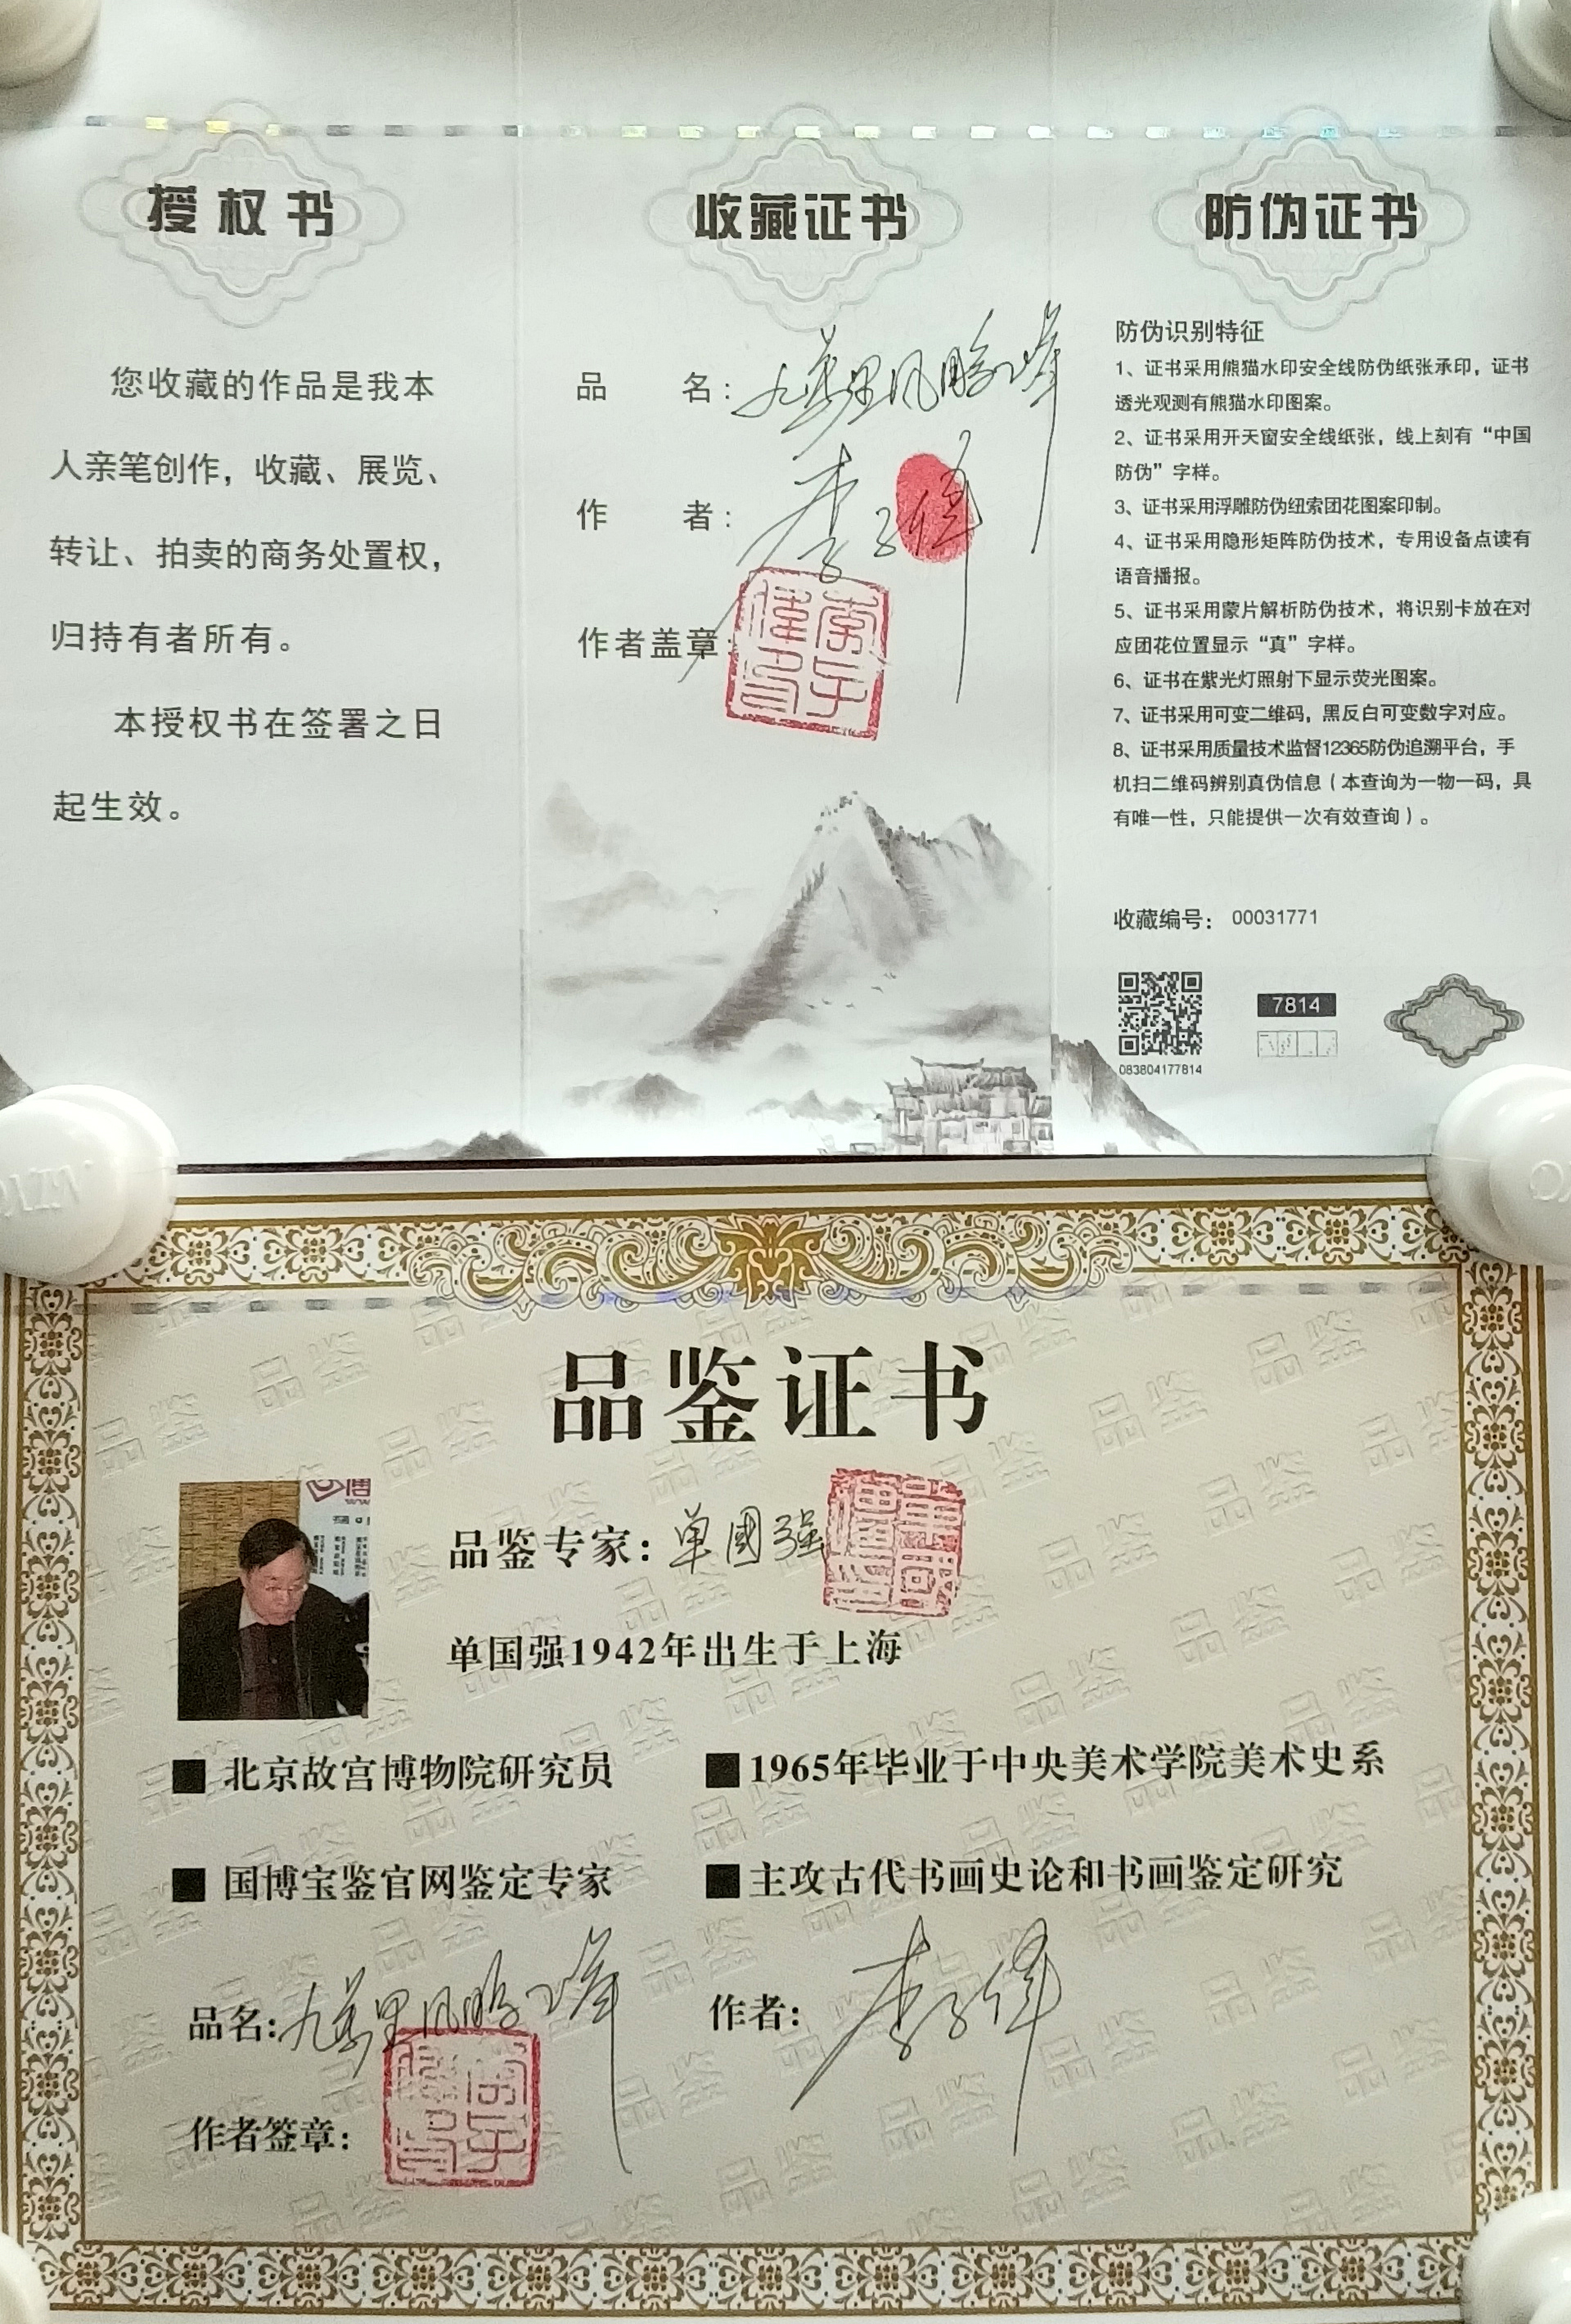 授权书
您收藏的作品是我本
人亲笔创作，收藏、展览、
转让、拍卖的商务处置权，
归持有者所有。
本授权书在签署之日
起生效。
收藏证书
品 名：九万里风鹏
作 者：李子
作者盖章：
防伪证书
防伪识别特征
1、证书采用熊猫水印安全线防伪纸张承印，证书
透光观测有熊猫水印图案。
2、证书采用开天窗安全线纸张，线上刻有“中国
防伪”字样。
3、证书采用浮雕防伪纽索团花图案印制。
4、证书采用隐形矩阵防伪技术，专用设备点读有
语音播报。
5、证书采用蒙片解析防伪技术，将识别卡放在对
应团花位置显示“真”字样。
6、证书在紫光灯照射下显示荧光图案。
7、证书采用可变二维码，黑反白可变数字对应。
8、证书采用质量技术监督12365防伪追溯平台，手
机扫二维码辨别真伪信息（本查询为一物一码，具
有唯一性，只能提供一次有效查询）。
收藏编号：00031771
7814
083804177814
品鉴证书
品鉴专家：单國强
单国强1942年出生于上海
■ 北京故宫博物院研究员
■ 1965年毕业于中央美术学院美术史系
■ 国博宝鉴官网鉴定专家
■ 主攻古代书画史论和书画鉴定研究
品名：九万里风鹏
作者：李子
作者签章：